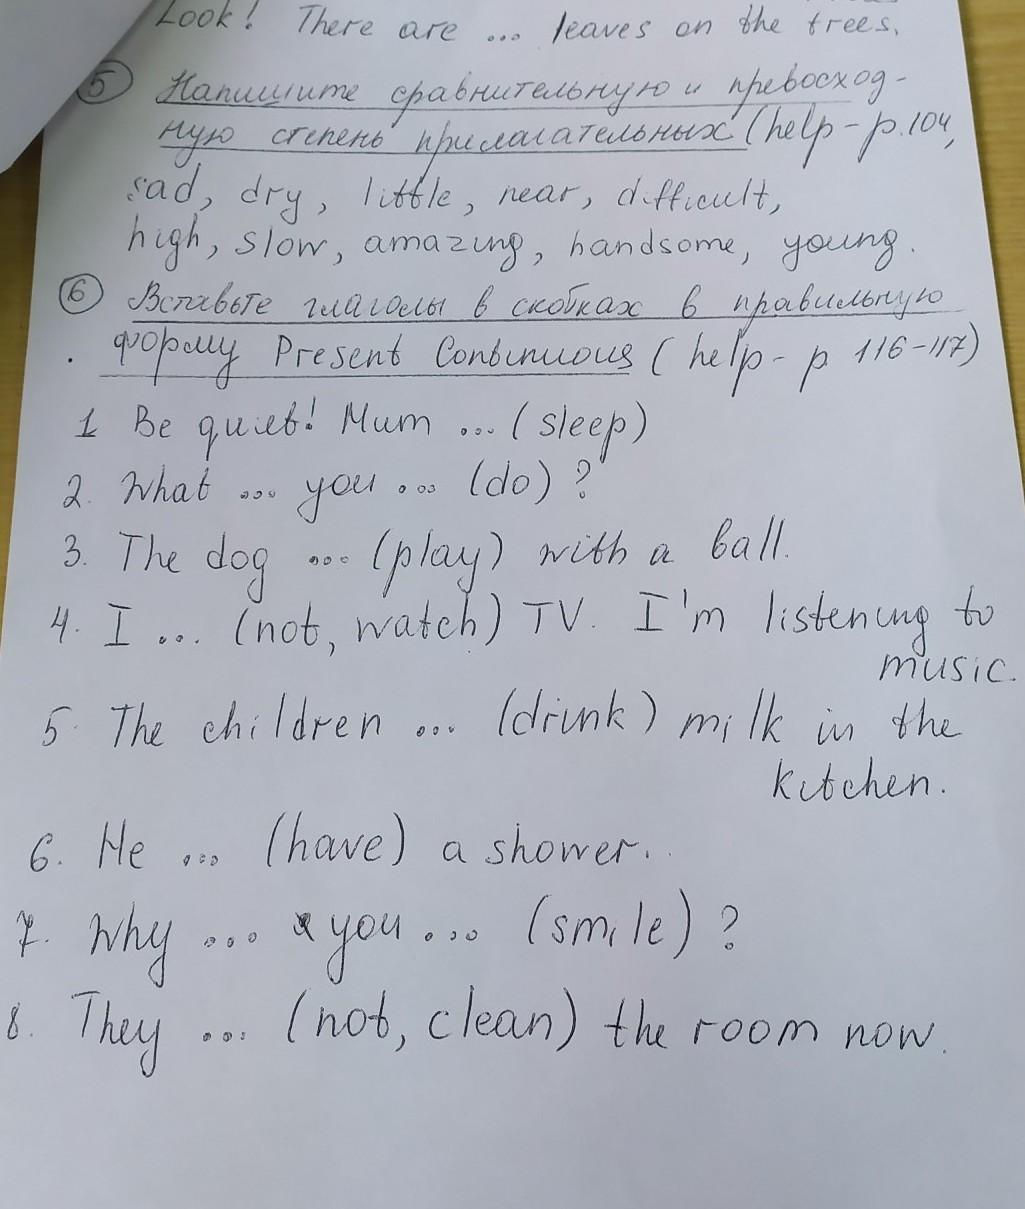 Look! There are ... leaves on the trees.
5 Напишите сравнительную и превосход-
ную степень прилагательных (help - p.104,
sad, dry, little, near, difficult,
high, slow, amazing, handsome, young.
6 Вставьте глаголы в скобках в правильную
форму Present Continuous (help - p 116-117)
1 Be quiet! Mum ... (sleep)
2. What ... you ... (do) ?
3. The dog ... (play) with a ball.
4. I ... (not, watch) TV. I'm listening to
music.
5. The children ... (drink) milk in the
kitchen.
6. He ... (have) a shower.
7. Why ... you ... (smile) ?
8. They ... (not, clean) the room now.